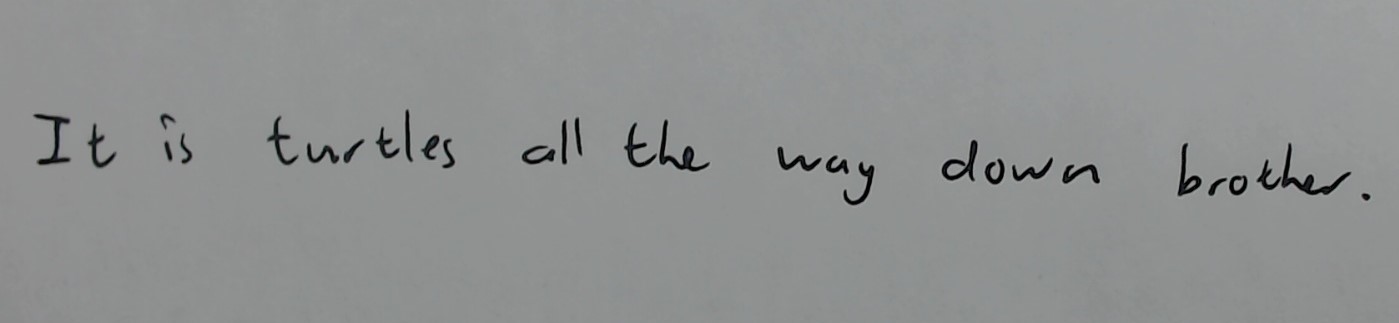 It is turtles all the way down brother.